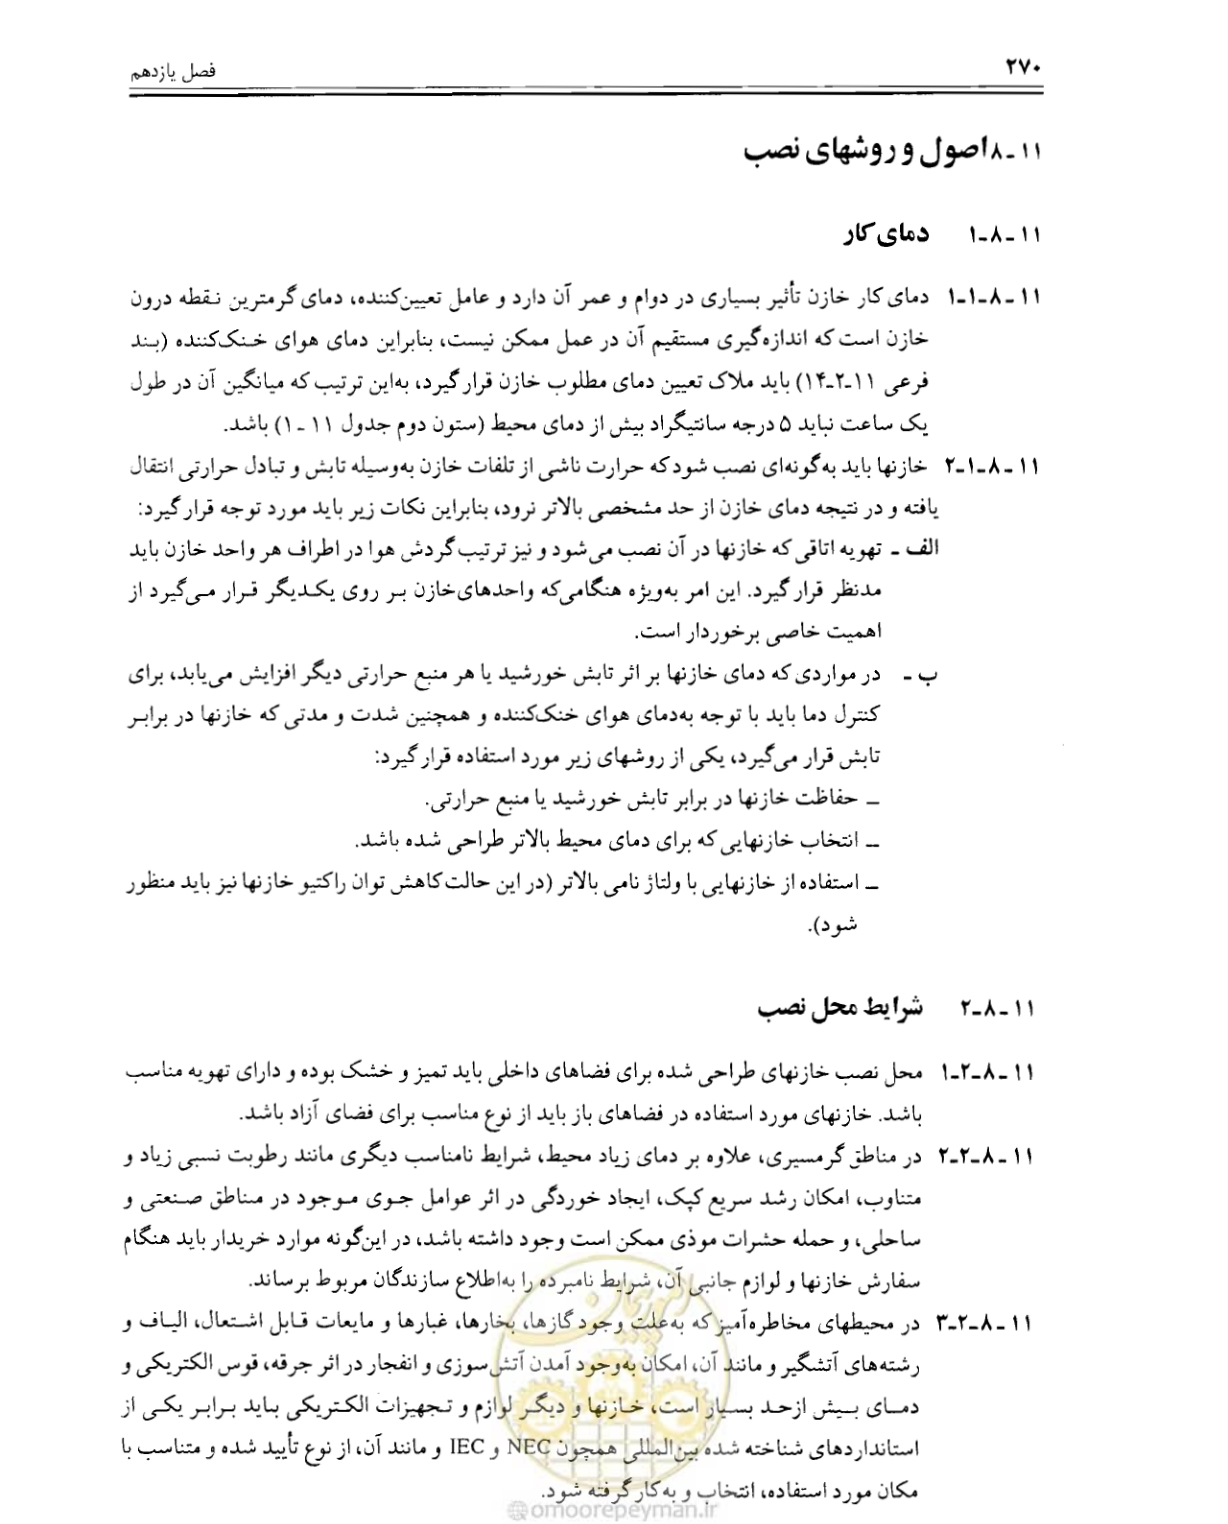 ۲۷۰
فصل یازدهم
۱۱-۸ اصول و روشهای نصب
۱۱-۸-۱ دمای کار
۱۱-۸-۱-۱ دمای کار خازن تأثیر بسیاری در دوام و عمر آن دارد و عامل تعیین‌کننده، دمای گرمترین نقطه درون
خازن است که اندازه‌گیری مستقیم آن در عمل ممکن نیست، بنابراین دمای هوای خنک‌کننده (بند
فرعی ۱۱-۲-۱۴) باید ملاک تعیین دمای مطلوب خازن قرار گیرد، به‌این ترتیب که میانگین آن در طول
یک ساعت نباید ۵ درجه سانتیگراد بیش از دمای محیط (ستون دوم جدول ۱۱-۱) باشد.
۱۱-۸-۱-۲ خازنها باید به‌گونه‌ای نصب شود که حرارت ناشی از تلفات خازن به‌وسیله تابش و تبادل حرارتی انتقال
یافته و در نتیجه دمای خازن از حد مشخصی بالاتر نرود، بنابراین نکات زیر باید مورد توجه قرار گیرد:
الف - تهویه اتاقی که خازنها در آن نصب می‌شود و نیز ترتیب گردش هوا در اطراف هر واحد خازن باید
مدنظر قرار گیرد. این امر به‌ویژه هنگامی‌که واحدهای‌خازن بر روی یکدیگر قرار می‌گیرد از
اهمیت خاصی برخوردار است.
ب - در مواردی که دمای خازنها بر اثر تابش خورشید یا هر منبع حرارتی دیگر افزایش می‌یابد، برای
کنترل دما باید با توجه به‌دمای هوای خنک‌کننده و همچنین شدت و مدتی که خازنها در برابر
تابش قرار می‌گیرد، یکی از روشهای زیر مورد استفاده قرار گیرد:
– حفاظت خازنها در برابر تابش خورشید یا منبع حرارتی.
– انتخاب خازنهایی که برای دمای محیط بالاتر طراحی شده باشد.
– استفاده از خازنهایی با ولتاژ نامی بالاتر (در این حالت کاهش توان راکتیو خازنها نیز باید منظور
شود).
۱۱-۸-۲ شرایط محل نصب
۱۱-۸-۲-۱ محل نصب خازنهای طراحی شده برای فضاهای داخلی باید تمیز و خشک بوده و دارای تهویه مناسب
باشد. خازنهای مورد استفاده در فضاهای باز باید از نوع مناسب برای فضای آزاد باشد.
۱۱-۸-۲-۲ در مناطق گرمسیری، علاوه بر دمای زیاد محیط، شرایط نامناسب دیگری مانند رطوبت نسبی زیاد و
متناوب، امکان رشد سریع کپک، ایجاد خوردگی در اثر عوامل جوی موجود در مناطق صنعتی و
ساحلی، و حمله حشرات موذی ممکن است وجود داشته باشد، در این‌گونه موارد خریدار باید هنگام
سفارش خازنها و لوازم جانبی آن، شرایط نامبرده را به‌اطلاع سازندگان مربوط برساند.
۱۱-۸-۲-۳ در محیطهای مخاطره‌آمیز که به‌علت وجود گازها، بخارها، غبارها و مایعات قابل اشتعال، الیاف و
رشته‌های آتشگیر و مانند آن، امکان به‌وجود آمدن آتش‌سوزی و انفجار در اثر جرقه، قوس الکتریکی و
دمای بیش ازحد بسیار است، خازنها و دیگر لوازم و تجهیزات الکتریکی باید برابر یکی از
استانداردهای شناخته شده بین‌المللی همچون NEC و IEC و مانند آن، از نوع تأیید شده و متناسب با
مکان مورد استفاده، انتخاب و به‌کار گرفته شود.
امور پیمان
@omoorepeyman.ir